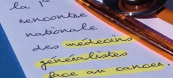 la 1re
rencontre
nationale
des médecins
généralistes
face au cancer.